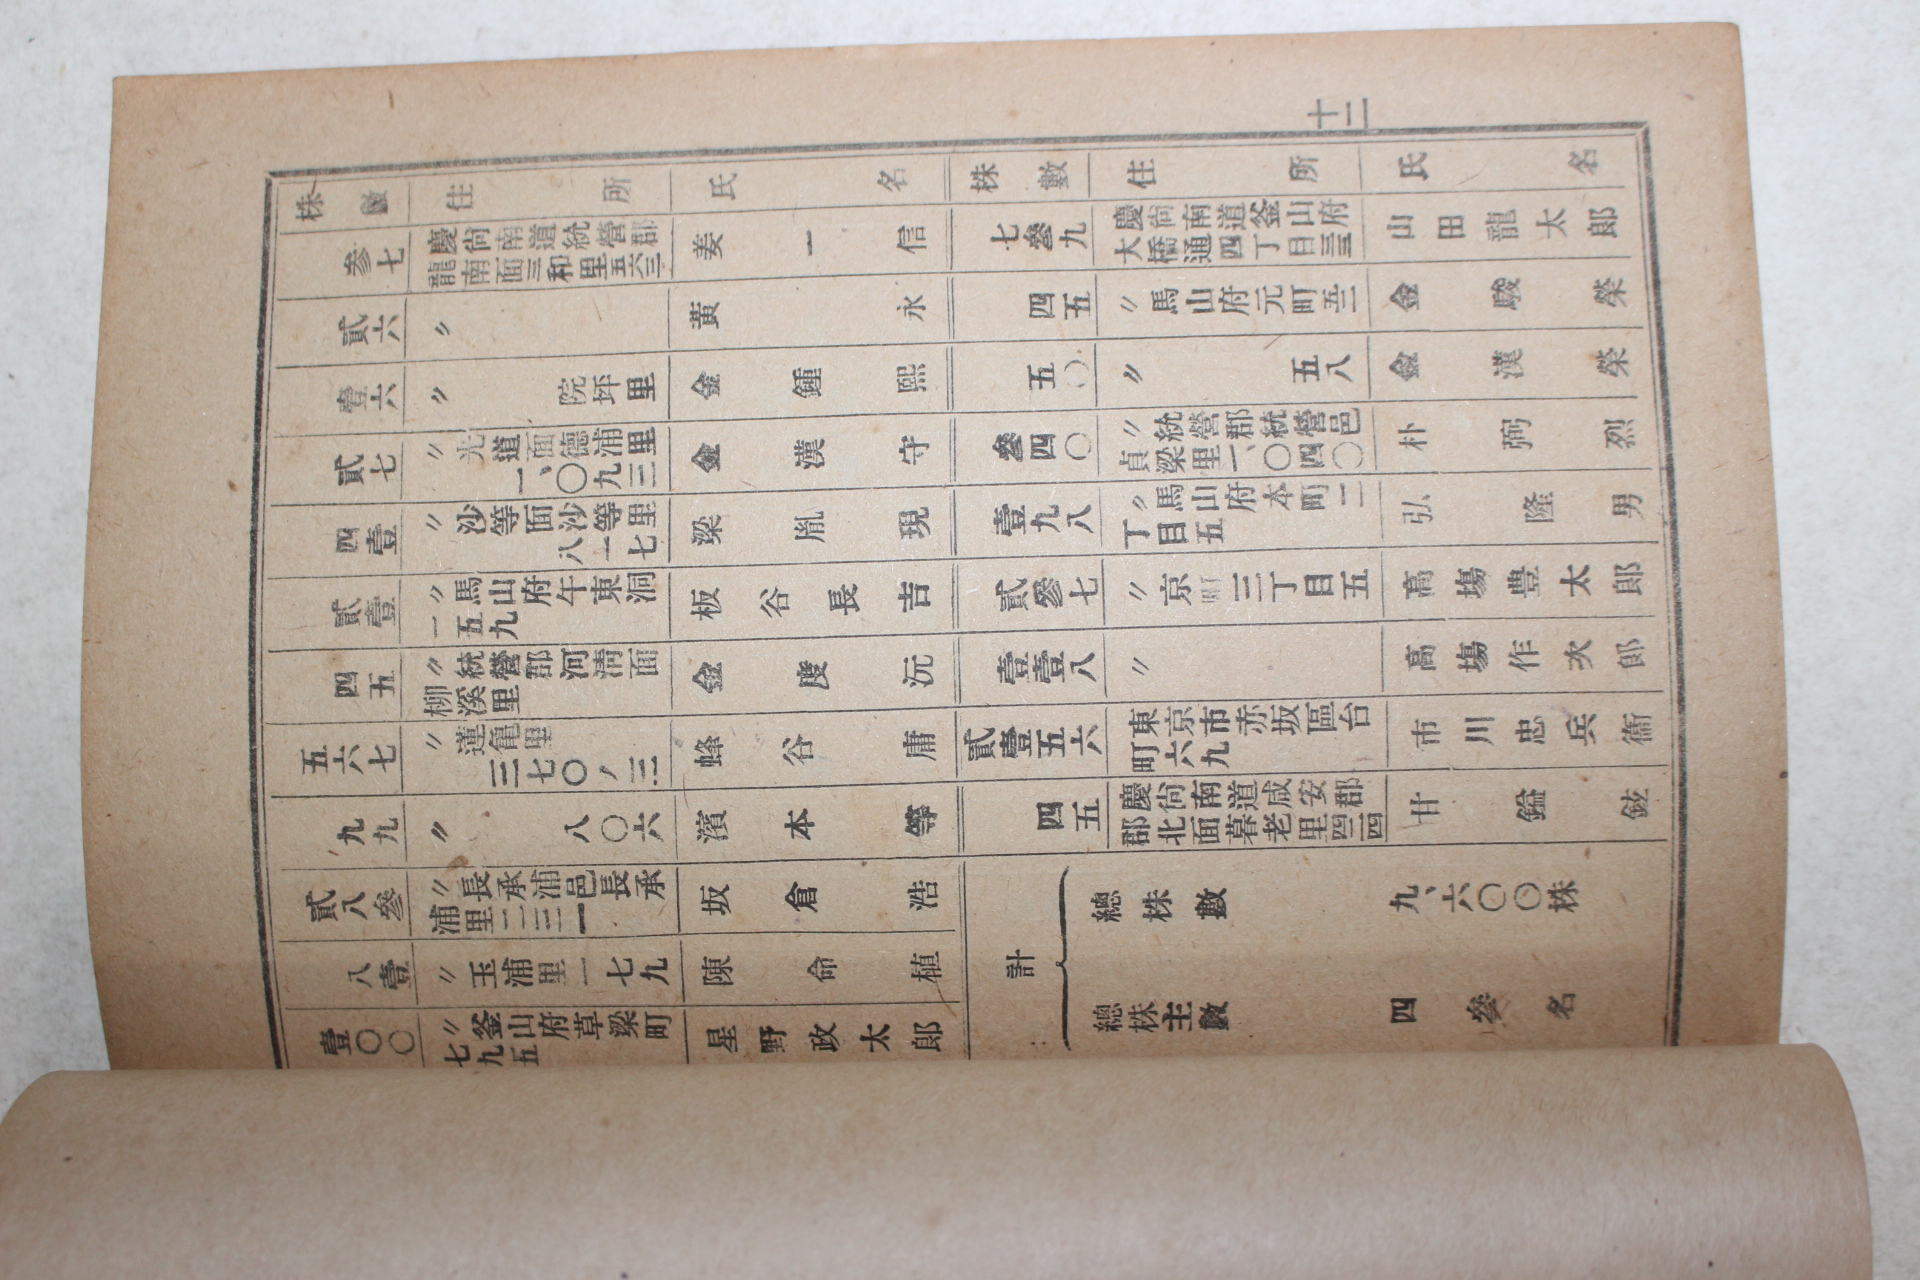 十二
株數 住所 氏名
參七 慶尙南道統營郡
龍南面三和里五六三 姜一信
貳六 〃 黃永
壹六 〃 院坪里 金鍾熙
貳七 〃光道面德浦里
一、〇九三 金漢守
四壹 〃沙等面沙等里
八一七 梁胤現
貳壹 〃馬山府午東洞
一五九 板谷長吉
四五 〃統營郡河淸面
柳溪里 金度沅
五六七 〃蓮龜里
三七〇ノ三 蜂谷庸
九九 〃 八〇六 濱本等
貳八參 〃長承浦邑長承
浦里二三一 坂倉浩
八壹 〃玉浦里一七九 陳命植
壹〇〇 〃釜山府草梁町
七九五 星野政太郎
株數 住所 氏名
七參九 慶尙南道釜山府
大橋通四丁目三三 山田龍太郎
四五 〃馬山府元町 金駿榮
五〇 〃 五八 金漢榮
參四〇 〃統營郡統營邑
貞梁里一、〇四〇 朴弼烈
壹九八 〃馬山府本町二
丁目五 弘隆男
貳參七 〃京町三丁目五 高塲豊太郎
壹壹八 〃 高塲作次郎
貳壹五六 東京市赤坂區台
町六九 市川忠兵衞
四五 慶尙南道咸安郡
郡北面暮老里四二四 甘鎰鉉
計
總株數 九、六〇〇株
總株主數 四參名